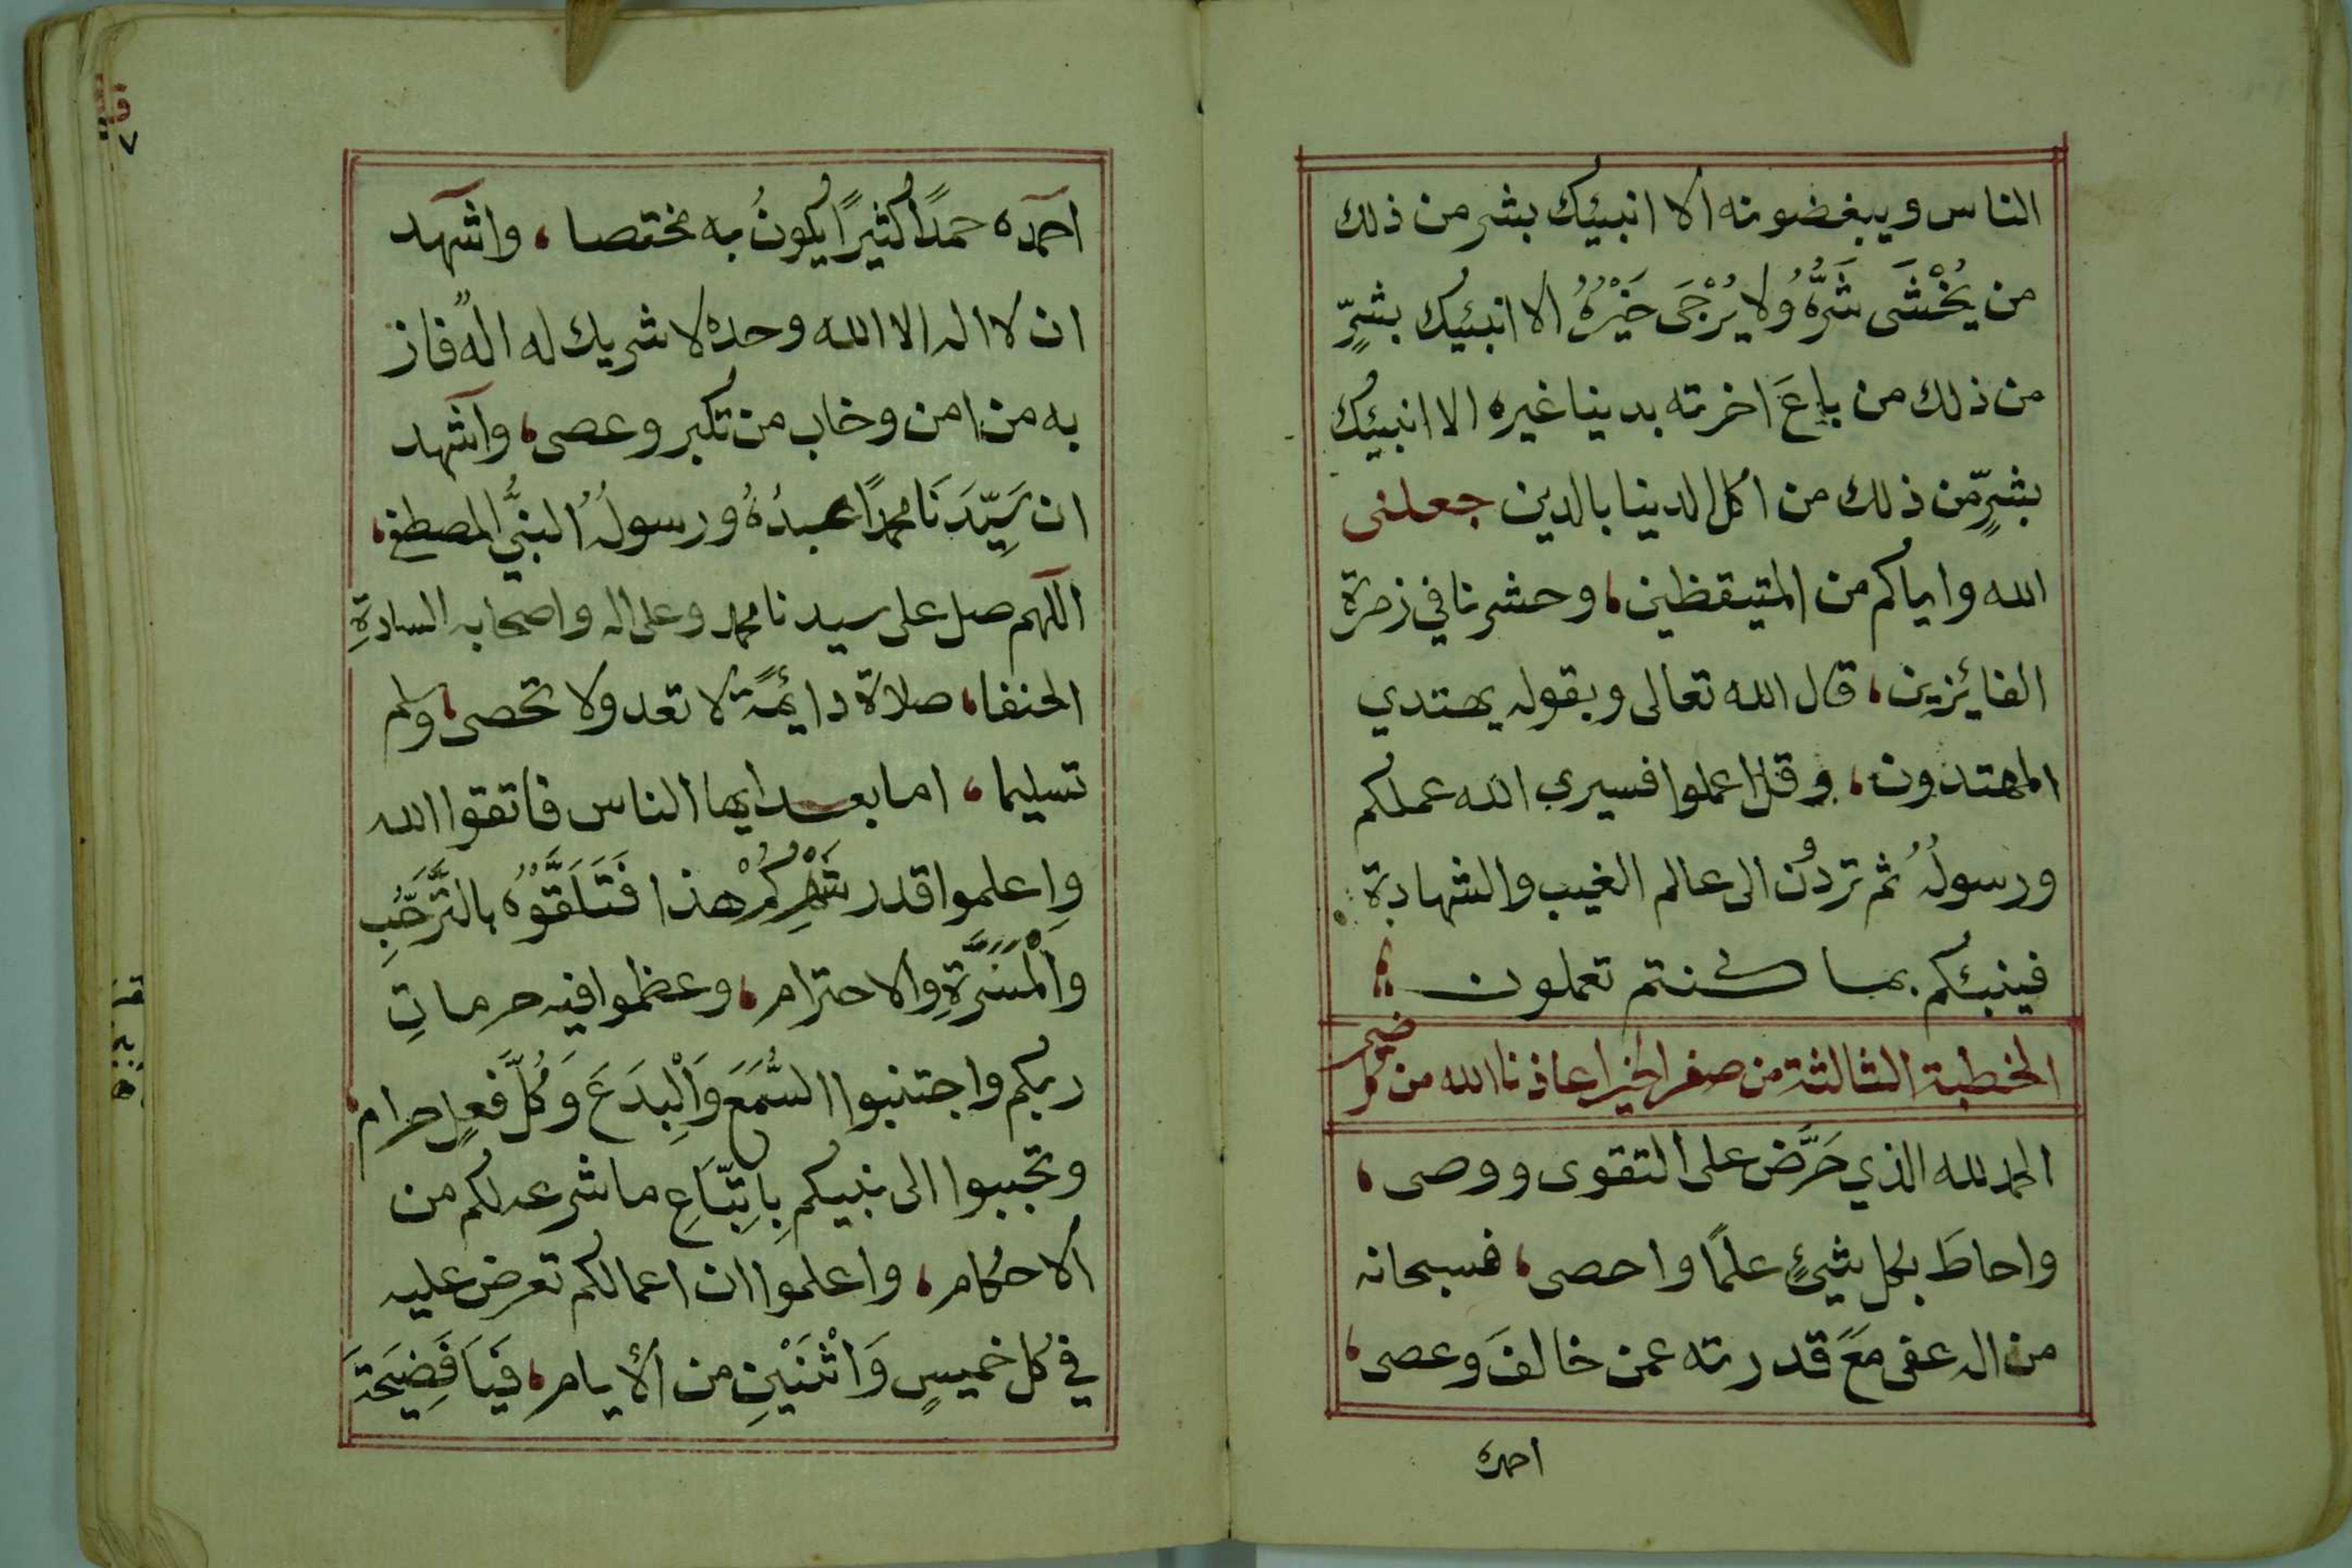 الناس ويبغضونه الا انبيئك بشر من ذلك
من يُخْشَى شَرُّهُ ولا يُرْجَى خَيْرُهُ الا انبيئك بشرٍّ
من ذلك من باعَ اخرته بدينا غيره الا انبيئك
بشرٍّ من ذلك من اكل الدينا بالدين جعلنى
الله واياكم من المتيقظين، وحشرنا في زمرة
الفائزين، قال الله تعالى وبقوله يهتدي
المهتدون، وقل اعملوا فسيرى الله عملكم
ورسولُهُ ثم تردون الى عالم الغيب والشهادة
فينبئكم بما كنتم تعملون
الخطبة الثالثة من صفر الخير اعاذنا الله من كل ضير
الحمد لله الذي حَرَّض على التقوى ووصى،
واحاطَ بكل شيءٍ علمًا واحصى، فسبحانه
من اله عفى مَعَ قدرته عمن خالفَ وعصى،
احمده
احمده حمدًا كثيرًا يكونُ به مختصا، واشهد
ان لا اله الا الله وحده لا شريك له الهً فاز
به من امن وخاب من تكبر وعصى، واشهد
ان سَيِّدَنَا محمدًا عبدُهُ ورسولُهُ النبيُّ المصطفى،
اللهم صل على سيدنا محمد وعلى اله واصحابه السادةِ
الحنفا، صلاة دائمةً لا تعد ولا تحصى، وسلم
تسليما، اما بعد ايها الناس فاتقوا الله
واعلموا قدر شَهْرِكُمْ هذا فَتَلَقَّوْهُ بالتَّرَحُّبِ
وَالْمَسَرَّةِ والاحترام، وعظموا فيه حرماتِ
ربكم واجتنبوا السُّمَعَ وَالْبِدَعَ وَكُلَّ فعلٍ حرام،
وتحببوا الى نبيكم بِاتِّبَاعِ ما شرعه لكم من
الاحكام، واعلموا ان اعمالكم تعرض عليه
في كل خميسٍ وَاثْنَيْنِ من الأيام، فَيَا فَضِيحَةَ